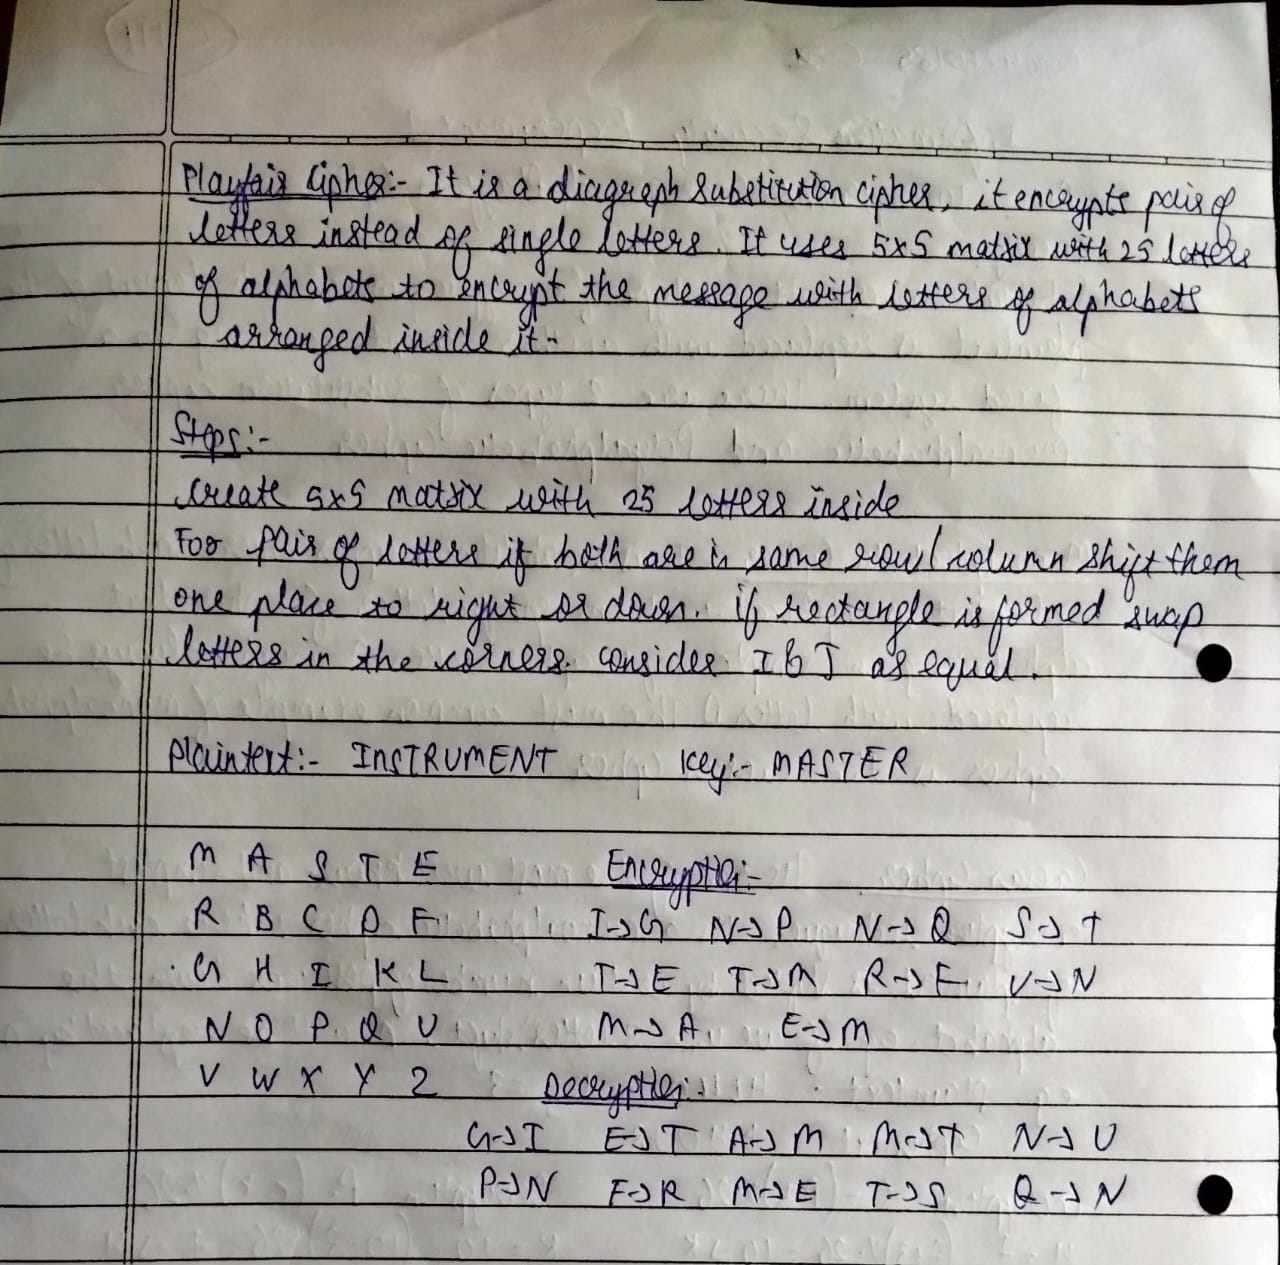 Playfair Cipher:- It is a diagraph substitution cipher, it encrypts pair of
letters instead of single letters. It uses 5x5 matrix with 25 letters
of alphabets to encrypt the message with letters of alphabets
arranged inside it.
Steps:-
Create 5x5 matrix with 25 letters inside
For pair of letters if both are in same row/column shift them
one place to right or down. if rectangle is formed swap
letters in the corners. consider I & J as equal.
Plaintext:- INSTRUMENT Key:- MASTER
M A S T E Encryption:-
R B C D F I→G N→P N→Q S→T
G H I K L T→E T→M R→F U→N
N O P Q U M→A E→M
V W X Y Z Decryption:-
G→I E→T A→M M→T N→U
P→N F→R M→E T→S Q→N